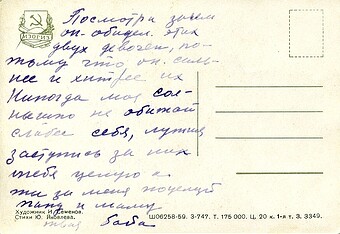 ИЗОГИЗ
Посмотри зачем
он обидел этих
двух девочек, по-
тому что он силь-
нее и хитрее их
Никогда моё сол-
нышко не обижай
слабее себя, лучше
заступись за них
тебя целую а
ты за меня поцелуй
папу и маму
твоя баба
Художник И. Семенов.
Стихи Ю. Яковлева.
Ш06258-59. З-747. Т. 175 000. Ц. 20 к. 1-я т. З. 3349.